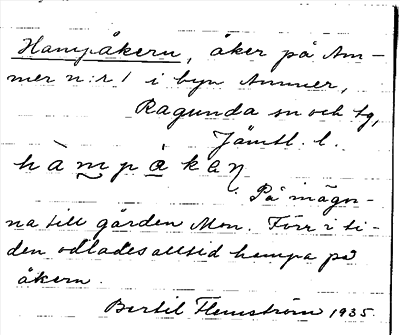 Hampåkern, åker på Am-
mer n:r 1 i byn Ammer,
Ragunda sn och tg,
Jämtl. l.
hàmpåkaṇ
På ägor-
na till gården Mon. Förr i ti-
den odlades alltid hampa på
åkern.
Bertil Flemström 1935.